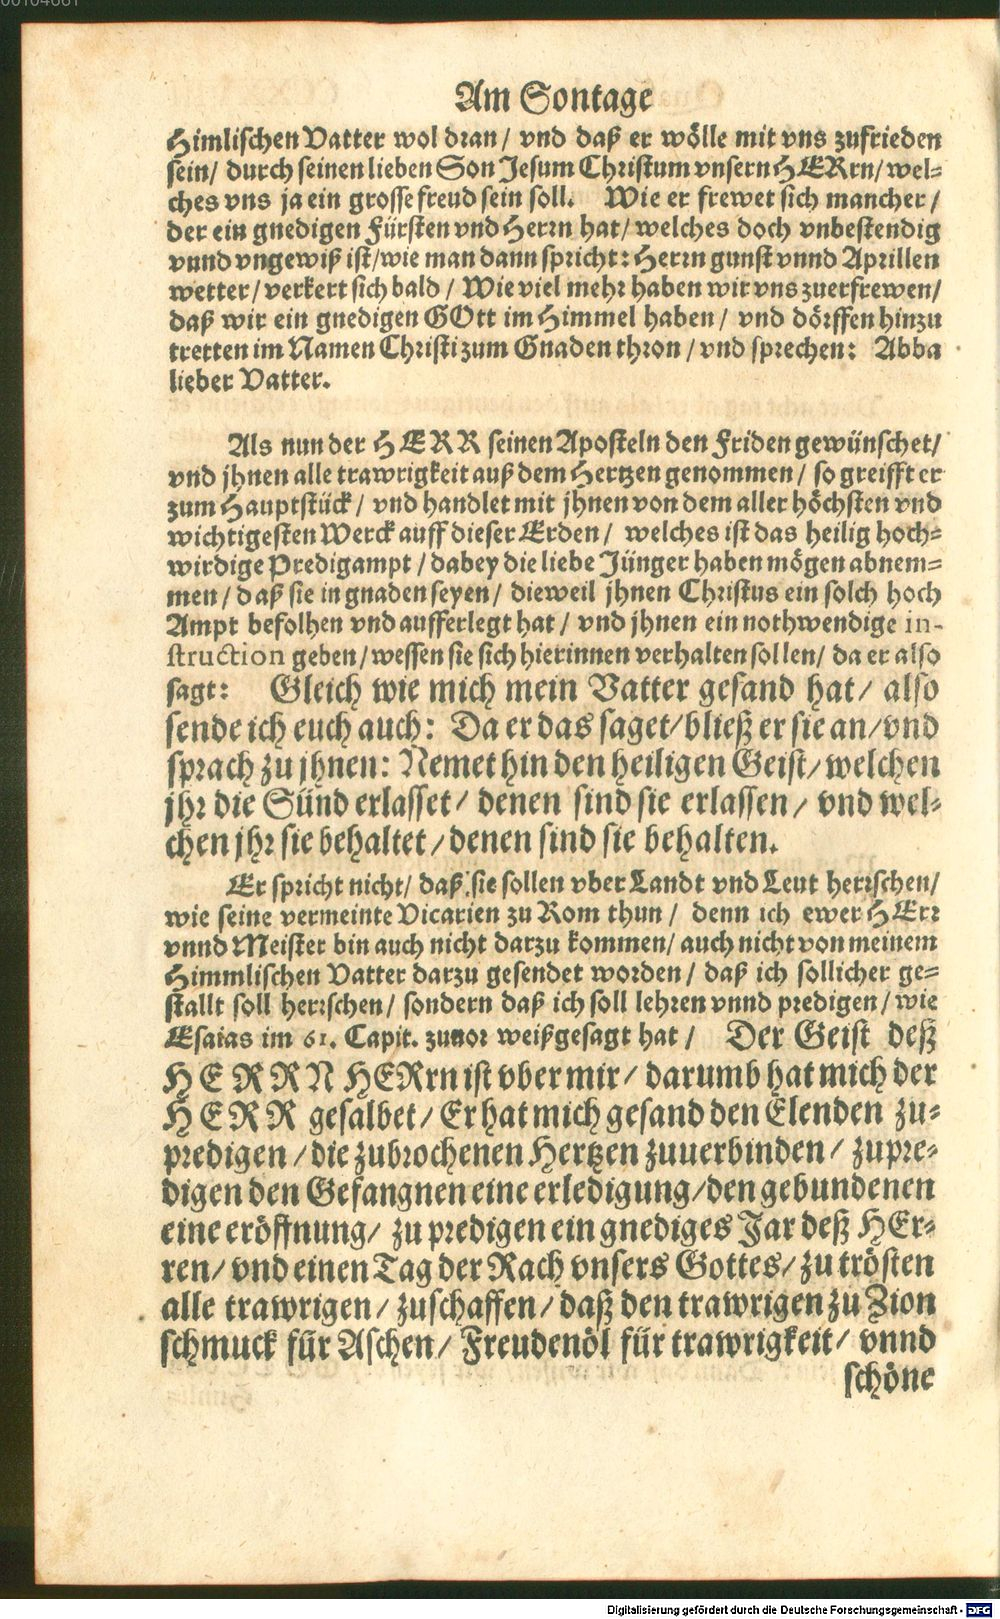 Am Sontage
Himlischen Vatter wol dran / vnd daß er wölle mit vns zufrieden
sein / durch seinen lieben Son Jesum Christum vnsern HERrn / wel=
ches vns ja ein grosse freud sein soll. Wie er frewet sich mancher /
der ein gnedigen Fürsten vnd Herrn hat / welches doch vnbestendig
vnnd vngewiß ist / wie man dann spricht: Herrn gunst vnnd Aprillen
wetter / verkert sich bald / Wie viel mehr haben wir vns zuerfrewen /
daß wir ein gnedigen GOtt im Himmel haben / vnd dörffen hinzu
tretten im Namen Christi zum Gnaden thron / vnd sprechen: Abba
lieber Vatter.
Als nun der HERR seinen Aposteln den Friden gewünschet /
vnd jhnen alle trawrigkeit auß dem Hertzen genommen / so greifft er
zum Hauptstück / vnd handlet mit jhnen von dem aller höchsten vnd
wichtigesten Werck auff dieser Erden / welches ist das heilig hoch=
wirdige Predigampt / dabey die liebe Jünger haben mögen abnem=
men / daß sie in gnaden seyen / dieweil jhnen Christus ein solch hoch
Ampt befolhen vnd aufferlegt hat / vnd jhnen ein nothwendige in-
struction geben / wessen sie sich hierinnen verhalten sollen / da er also
sagt: Gleich wie mich mein Vatter gesand hat / also
sende ich euch auch: Da er das saget / bließ er sie an / vnd
sprach zu jhnen: Nemet hin den heiligen Geist / welchen
jhr die Sünd erlasset / denen sind sie erlassen / vnd wel=
chen jhr sie behaltet / denen sind sie behalten.
Er spricht nicht / daß sie sollen vber Landt vnd Leut herrschen /
wie seine vermeinte Vicarien zu Rom thun / denn ich ewer HErr
vnnd Meister bin auch nicht darzu kommen / auch nicht von meinem
Himmlischen Vatter darzu gesendet worden / daß ich sollicher ge=
stallt soll herrschen / sondern daß ich soll lehren vnnd predigen / wie
Esaias im 61. Capit. zuuor weißgesagt hat / Der Geist deß
HERRN HERrn ist vber mir / darumb hat mich der
HERR gesalbet / Er hat mich gesand den Elenden zu=
predigen / die zubrochenen Hertzen zuuerbinden / zupre=
digen den Gefangnen eine erledigung / den gebundenen
eine eröffnung / zu predigen ein gnediges Jar deß HEr=
ren / vnd einen Tag der Rach vnsers Gottes / zu trösten
alle trawrigen / zuschaffen / daß den trawrigen zu Zion
schmuck für Aschen / Freudenöl für trawrigkeit / vnnd
schöne
Digitalisierung gefördert durch die Deutsche Forschungsgemeinschaft - DFG